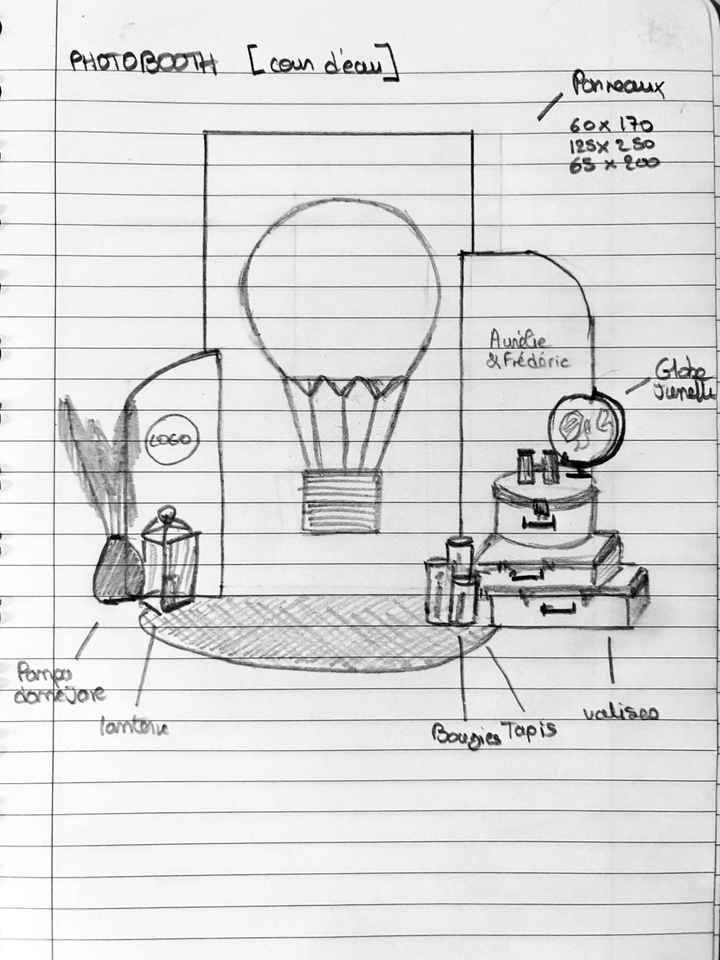 PHOTOBOOTH [cour d'eau]
Panneaux
60 x 170
125 x 250
65 x 200
Aurélie
& Frédéric
Globe
Jumelle
LOGO
Pampa
dame jane
lanterne
Bougies
Tapis
valises